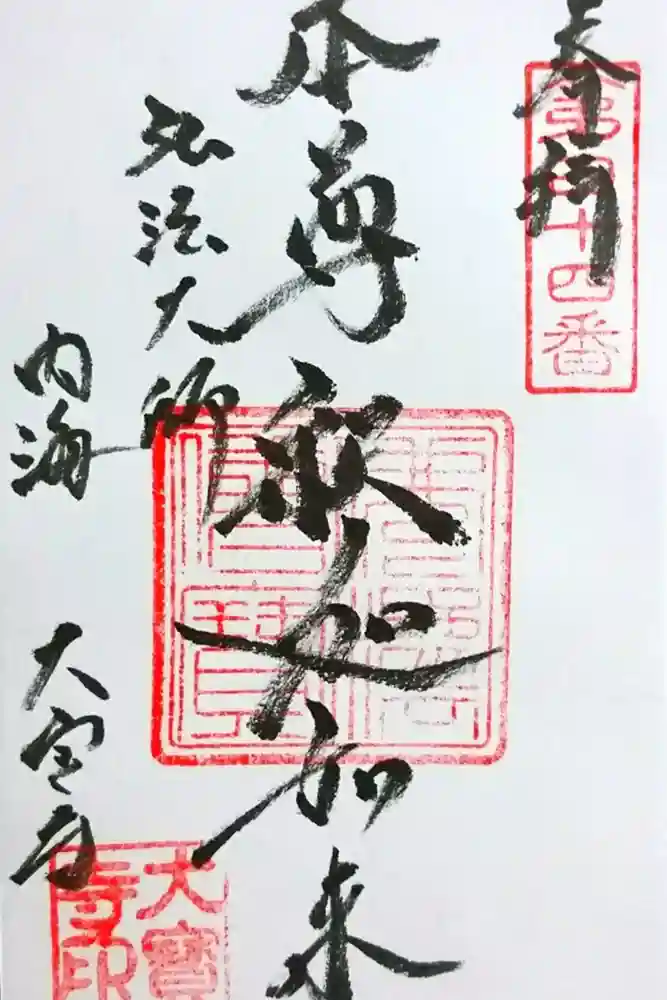 奉拝
第四十四番
本尊 釈迦如来
弘法大師
内海 大宝寺
大寶
寺印